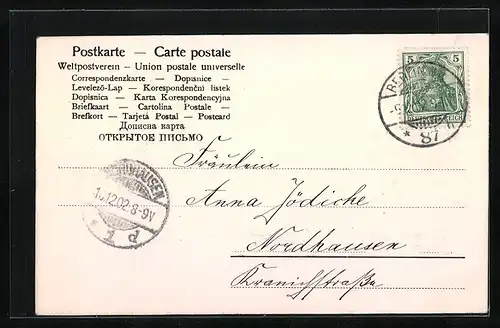 Postkarte — Carte postale
Weltpostverein — Union postale universelle
Correspondenzkarte — Dopisnice —
Levelező-Lap — Korespondenční listek
Dopisnica — Karta Korespondencyjna
Briefkaart — Cartolina Postale —
Brefkort — Tarjetá Postal — Postcard
Дописна карта
ОТКРЫТОЕ ПИСЬМО
5 5
87
NORDHAUSEN
16.12.02.8-9V
Fräulein
Anna Jödicke
Nordhausen
Kranichstraße